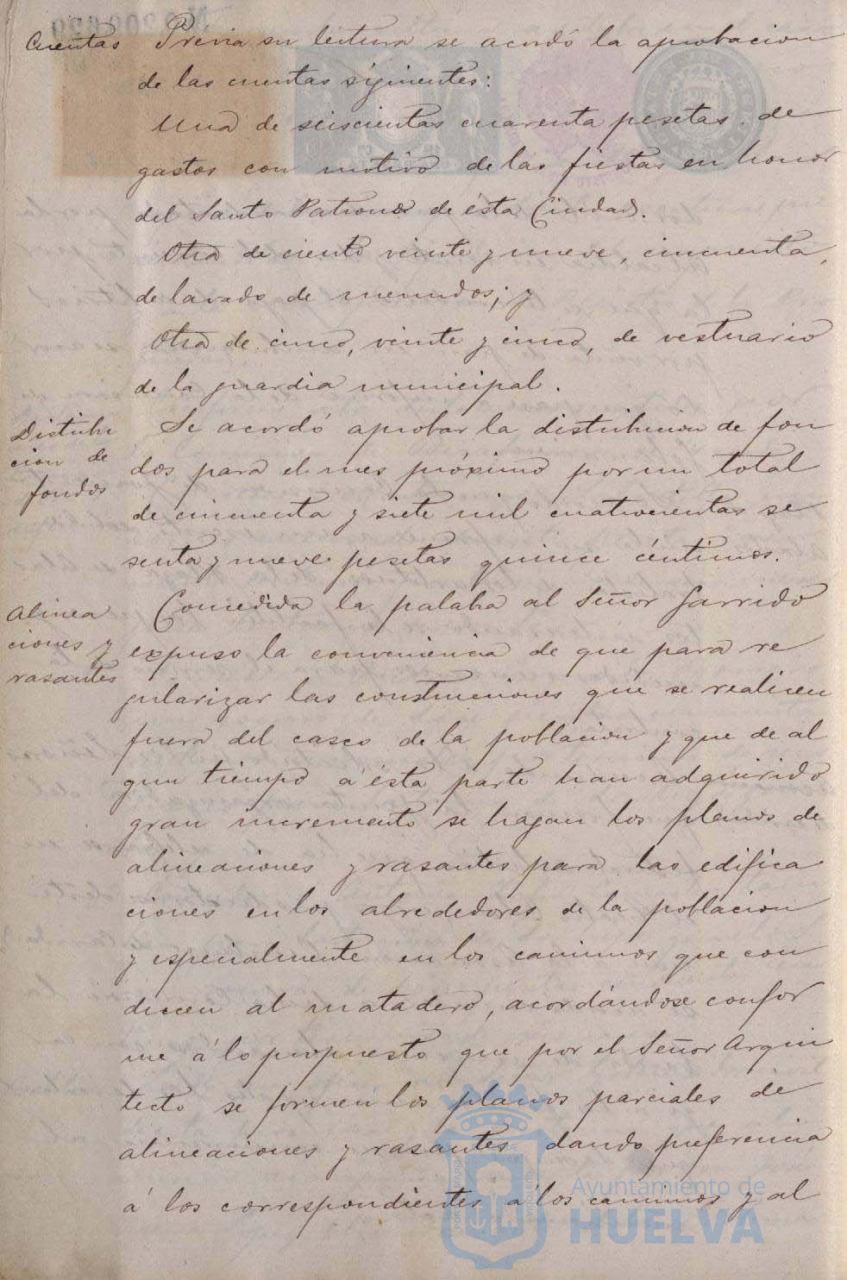 Cuentas Prévia su lectura se acordó la aprobacion
de las cuentas siguientes:
Una de seiscientas cuarenta pesetas de
gastos con motivo de las fiestas en honor
del Santo Patrono de ésta Ciudad.
Otra de ciento veinte y nueve, cincuenta,
de lavado de menudos; y
Otra de cinco, veinte y cinco, de vestuario
de la guardia municipal.
Distribu
cion de
fondos
Se acordó aprobar la distribucion de fon
dos para el mes próximo por un total
de cincuenta y siete mil cuatrocientas se
senta y nueve pesetas quince céntimos.
Alinea
ciones y
rasantes
Concedida la palabra al Señor Garrido
expuso la conveniencia de que para re
gularizar las construcciones que se realicen
fuera del casco de la poblacion y que de al
gun tiempo á ésta parte han adquirido
gran incremento se hagan los planos de
alineaciones y rasantes para las edifica
ciones en los alrededores de la poblacion
y especialmente en los caminos que con
ducen al matadero, acordándose confor
me á lo propuesto que por el Señor Arqui
tecto se formen los planos parciales de
alineaciones y rasantes dando preferencia
á los correspondientes á los caminos y al
Ayuntamiento de
HUELVA